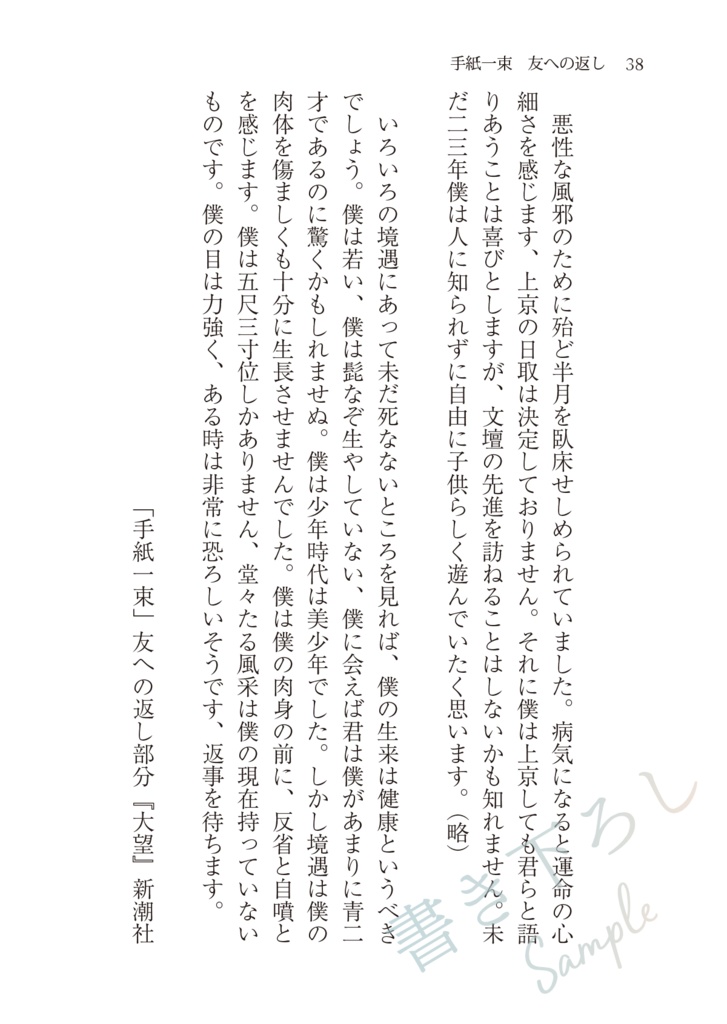 手紙一束　友への返し　38
　悪性な風邪のために殆ど半月を臥床せしめられていました。病気になると運命の心
細さを感じます、上京の日取は決定しておりません。それに僕は上京しても君らと語
りあうことは喜びとしますが、文壇の先進を訪ねることはしないかも知れません。未
だ二三年僕は人に知られずに自由に子供らしく遊んでいたく思います。（略）
　いろいろの境遇にあって未だ死なないところを見れば、僕の生来は健康というべき
でしょう。僕は若い、僕は髭なぞ生やしていない、僕に会えば君は僕があまりに青二
才であるのに驚くかもしれませぬ。僕は少年時代は美少年でした。しかし境遇は僕の
肉体を傷ましくも十分に生長させませんでした。僕は僕の肉身の前に、反省と自噴と
を感じます。僕は五尺三寸位しかありません、堂々たる風采は僕の現在持っていない
ものです。僕の目は力強く、ある時は非常に恐ろしいそうです、返事を待ちます。
「手紙一束」友への返し部分『大望』新潮社
書き下ろし
Sample